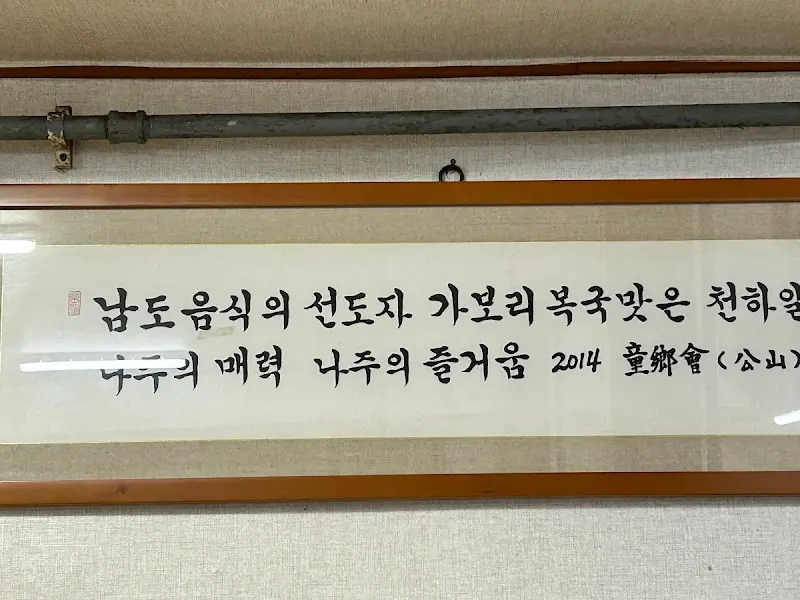 남도음식의 선도자 가보리복국맛은 천하일
나주의 매력 나주의 즐거움 2014 童鄕會(公山)